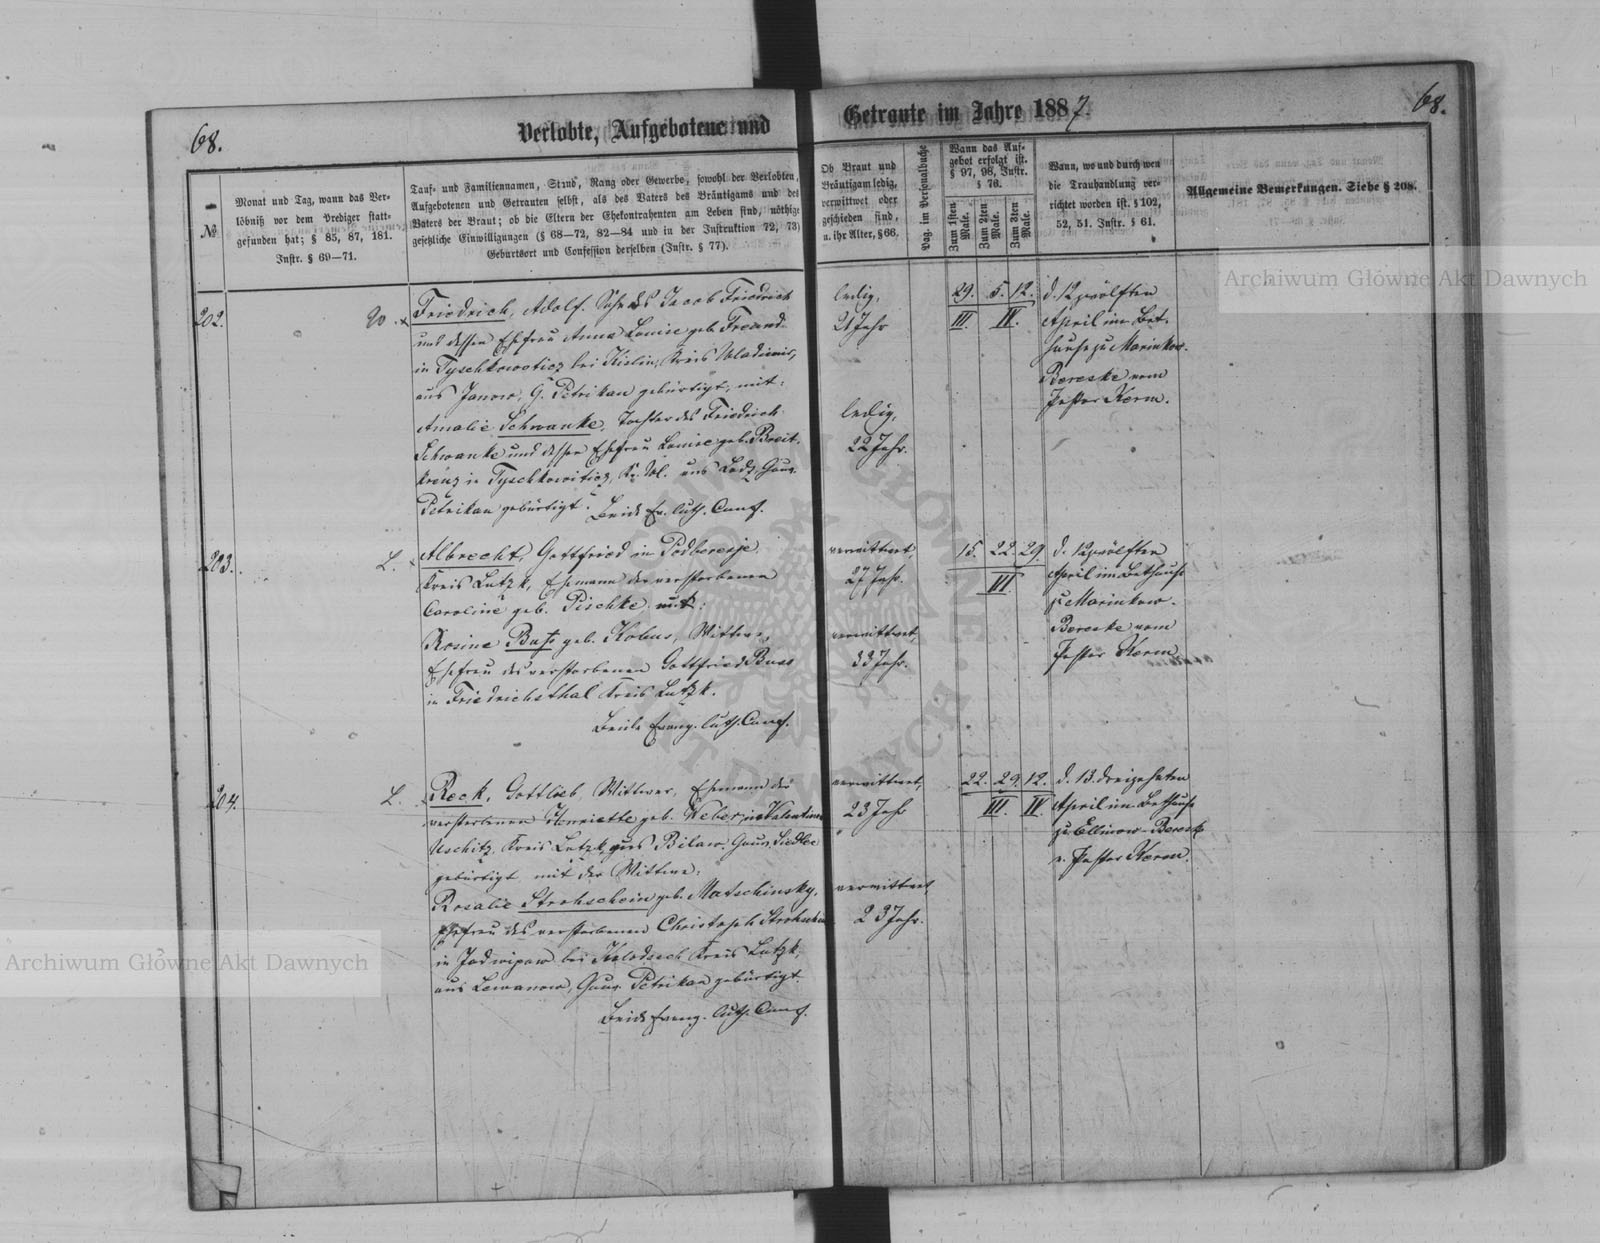 68.
Verlobte, Aufgebotene und
Getraute im Jahre 1887.
68.
№
Monat und Tag, wann das Ver-
löbniß vor dem Prediger statt-
gefunden hat; § 85, 87, 181.
Instr. § 69—71.
Tauf- und Familiennamen, Stand, Rang oder Gewerbe, sowohl der Verlobten,
Aufgebotenen und Getrauten selbst, als des Vaters des Bräutigams und des
Vaters der Braut; ob die Eltern der Ehekontrahenten am Leben sind, nöthige
gesetzliche Einwilligungen (§ 68—72, 82—84 und in der Instruktion 72, 73)
Geburtsort und Confession derselben (Instr. § 77).
Ob Braut und
Bräutigam ledig,
verwittwet oder
geschieden sind,
u. ihr Alter, § 66.
Pag. im Personalbuche
Wann das Auf-
gebot erfolgt ist.
§ 97, 98, Instr.
§ 76.
Zum 1sten
Male.
Zum 2ten
Male.
Zum 3ten
Male.
Wann, wo und durch wen
die Trauhandlung ver-
richtet worden ist. § 102,
52, 51. Instr. § 61.
Allgemeine Bemerkungen. Siehe § 208.
202.
Friedrich, Adolf. Sohn des Jacob Friedrich
und dessen Ehefrau Anna Louise geb. Freund
in Tyschkowoticz bei Kislin, Kreis Wladimir,
aus Janow, G. Petrikau gebürtigt, mit:
Amalie Schwanke, Tochter des Friedrich
Schwanke und dessen Ehefrau Louise geb. Breit-
kreuz in Tyschkowiticz, Kr. Wl. aus Lodz, Gouv.
Petrikau gebürtigt. Beide Ev. luth. Conf.
ledig,
21 Jahr
ledig,
22 Jahr.
29. 5. 12.
III. IV.
d. 12 zwölften
April im Bet-
hause zu Marinkow-
Bereske vom
Pastor Kerm.
203.
L.
Albrecht, Gottfried in Podberesje
Kreis Lutzk, Ehemann der verstorbenen
Caroline geb. Pischke, mit:
Rosine Buss geb. Kobus, Wittwe,
Ehefrau des verstorbenen Gottfried Buss
in Friedrichsthal Kreis Lutzk.
Beide Evang. luth. Conf.
verwittwet,
27 Jahr.
verwittwet,
33 Jahr.
15. 22. 29.
III.
d. 12 zwölften
April im Bethause
zu Marinkow-
Bereske vom
Pastor Kerm.
204.
L.
Reck, Gottlieb, Wittwer, Ehemann der
verstorbenen Henriette geb. Weber, in Valentinow
Uschitz, Kreis Lutzk, aus Bilaw, Gouv. Siedlec
gebürtigt mit der Wittwe:
Rosalie Strohschein geb. Matschinsky,
Ehefrau des verstorbenen Christoph Strohschein
in Jadwipow bei Kolodsesch Kreis Lutzk,
aus Lewanow, Gouv. Petrikau gebürtigt.
Beide Evang. luth. Conf.
verwittwet,
23 Jahr
verwittwet,
23 Jahr.
22. 29. 12.
III. IV.
d. 13. dreizehnten
April im Bethause
zu Ellinow-Beresk
v. Pastor Kerm.
Archiwum Główne Akt Dawnych
Archiwum Główne Akt Dawnych